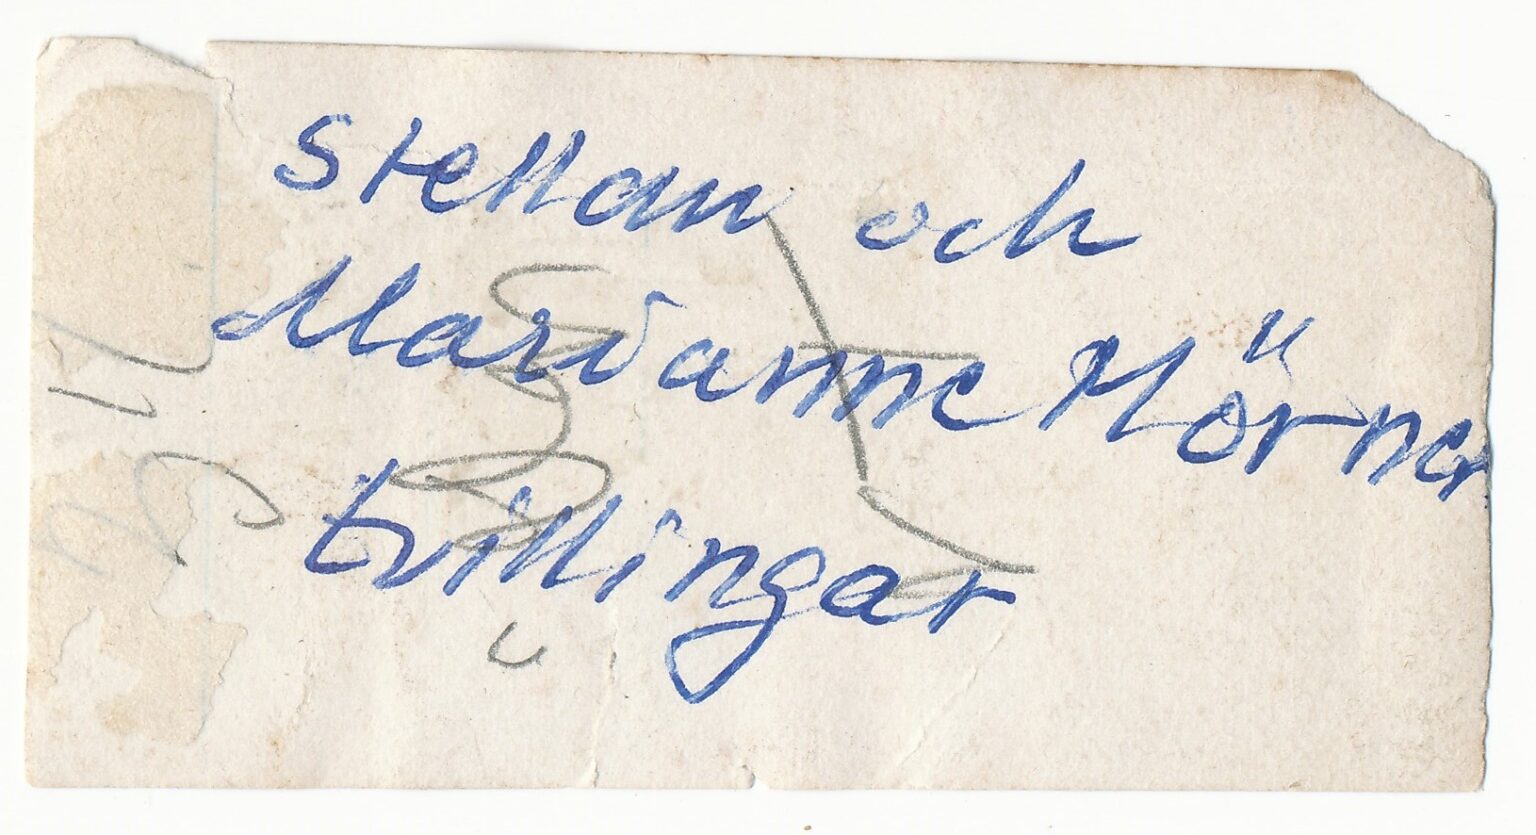 Stellan och
Marianne Mörner
tvillingar